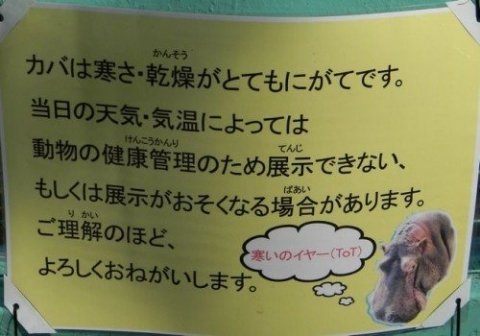 カバは寒さ・乾燥がとてもにがてです。
かんそう
当日の天気・気温によっては
動物の健康管理のため展示できない、
けんこうかんり
てんじ
もしくは展示がおそくなる場合があります。
ばあい
ご理解のほど、
りかい
よろしくおねがいします。
寒いのイヤー(ToT)